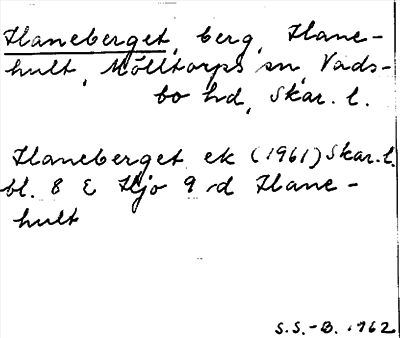 Haneberget, berg, Hane-
hult, Mölltorps sn, Vads-
bo hd, Skar. l.
Haneberget ek (1961) Skar. l.
bl. 8 E Hjo 9 d Hane-
hult
S.S.-B. 1962